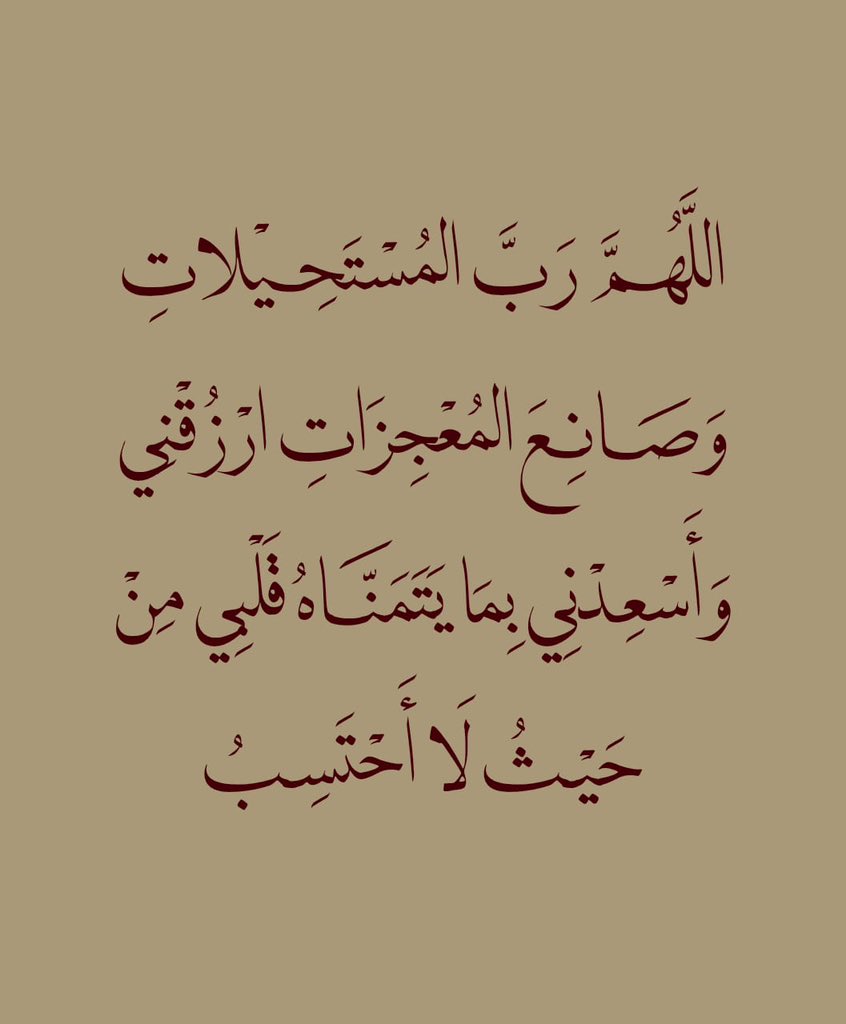 اللَّهُمَّ رَبَّ المُسْتَحِيْلاتِ
وَصَانِعَ المُعْجِزَاتِ ارْزُقْنِي
وَأَسْعِدْنِي بِمَا يَتَمَنَّاهُ قَلْبِي مِنْ
حَيْثُ لَا أَحْتَسِبُ